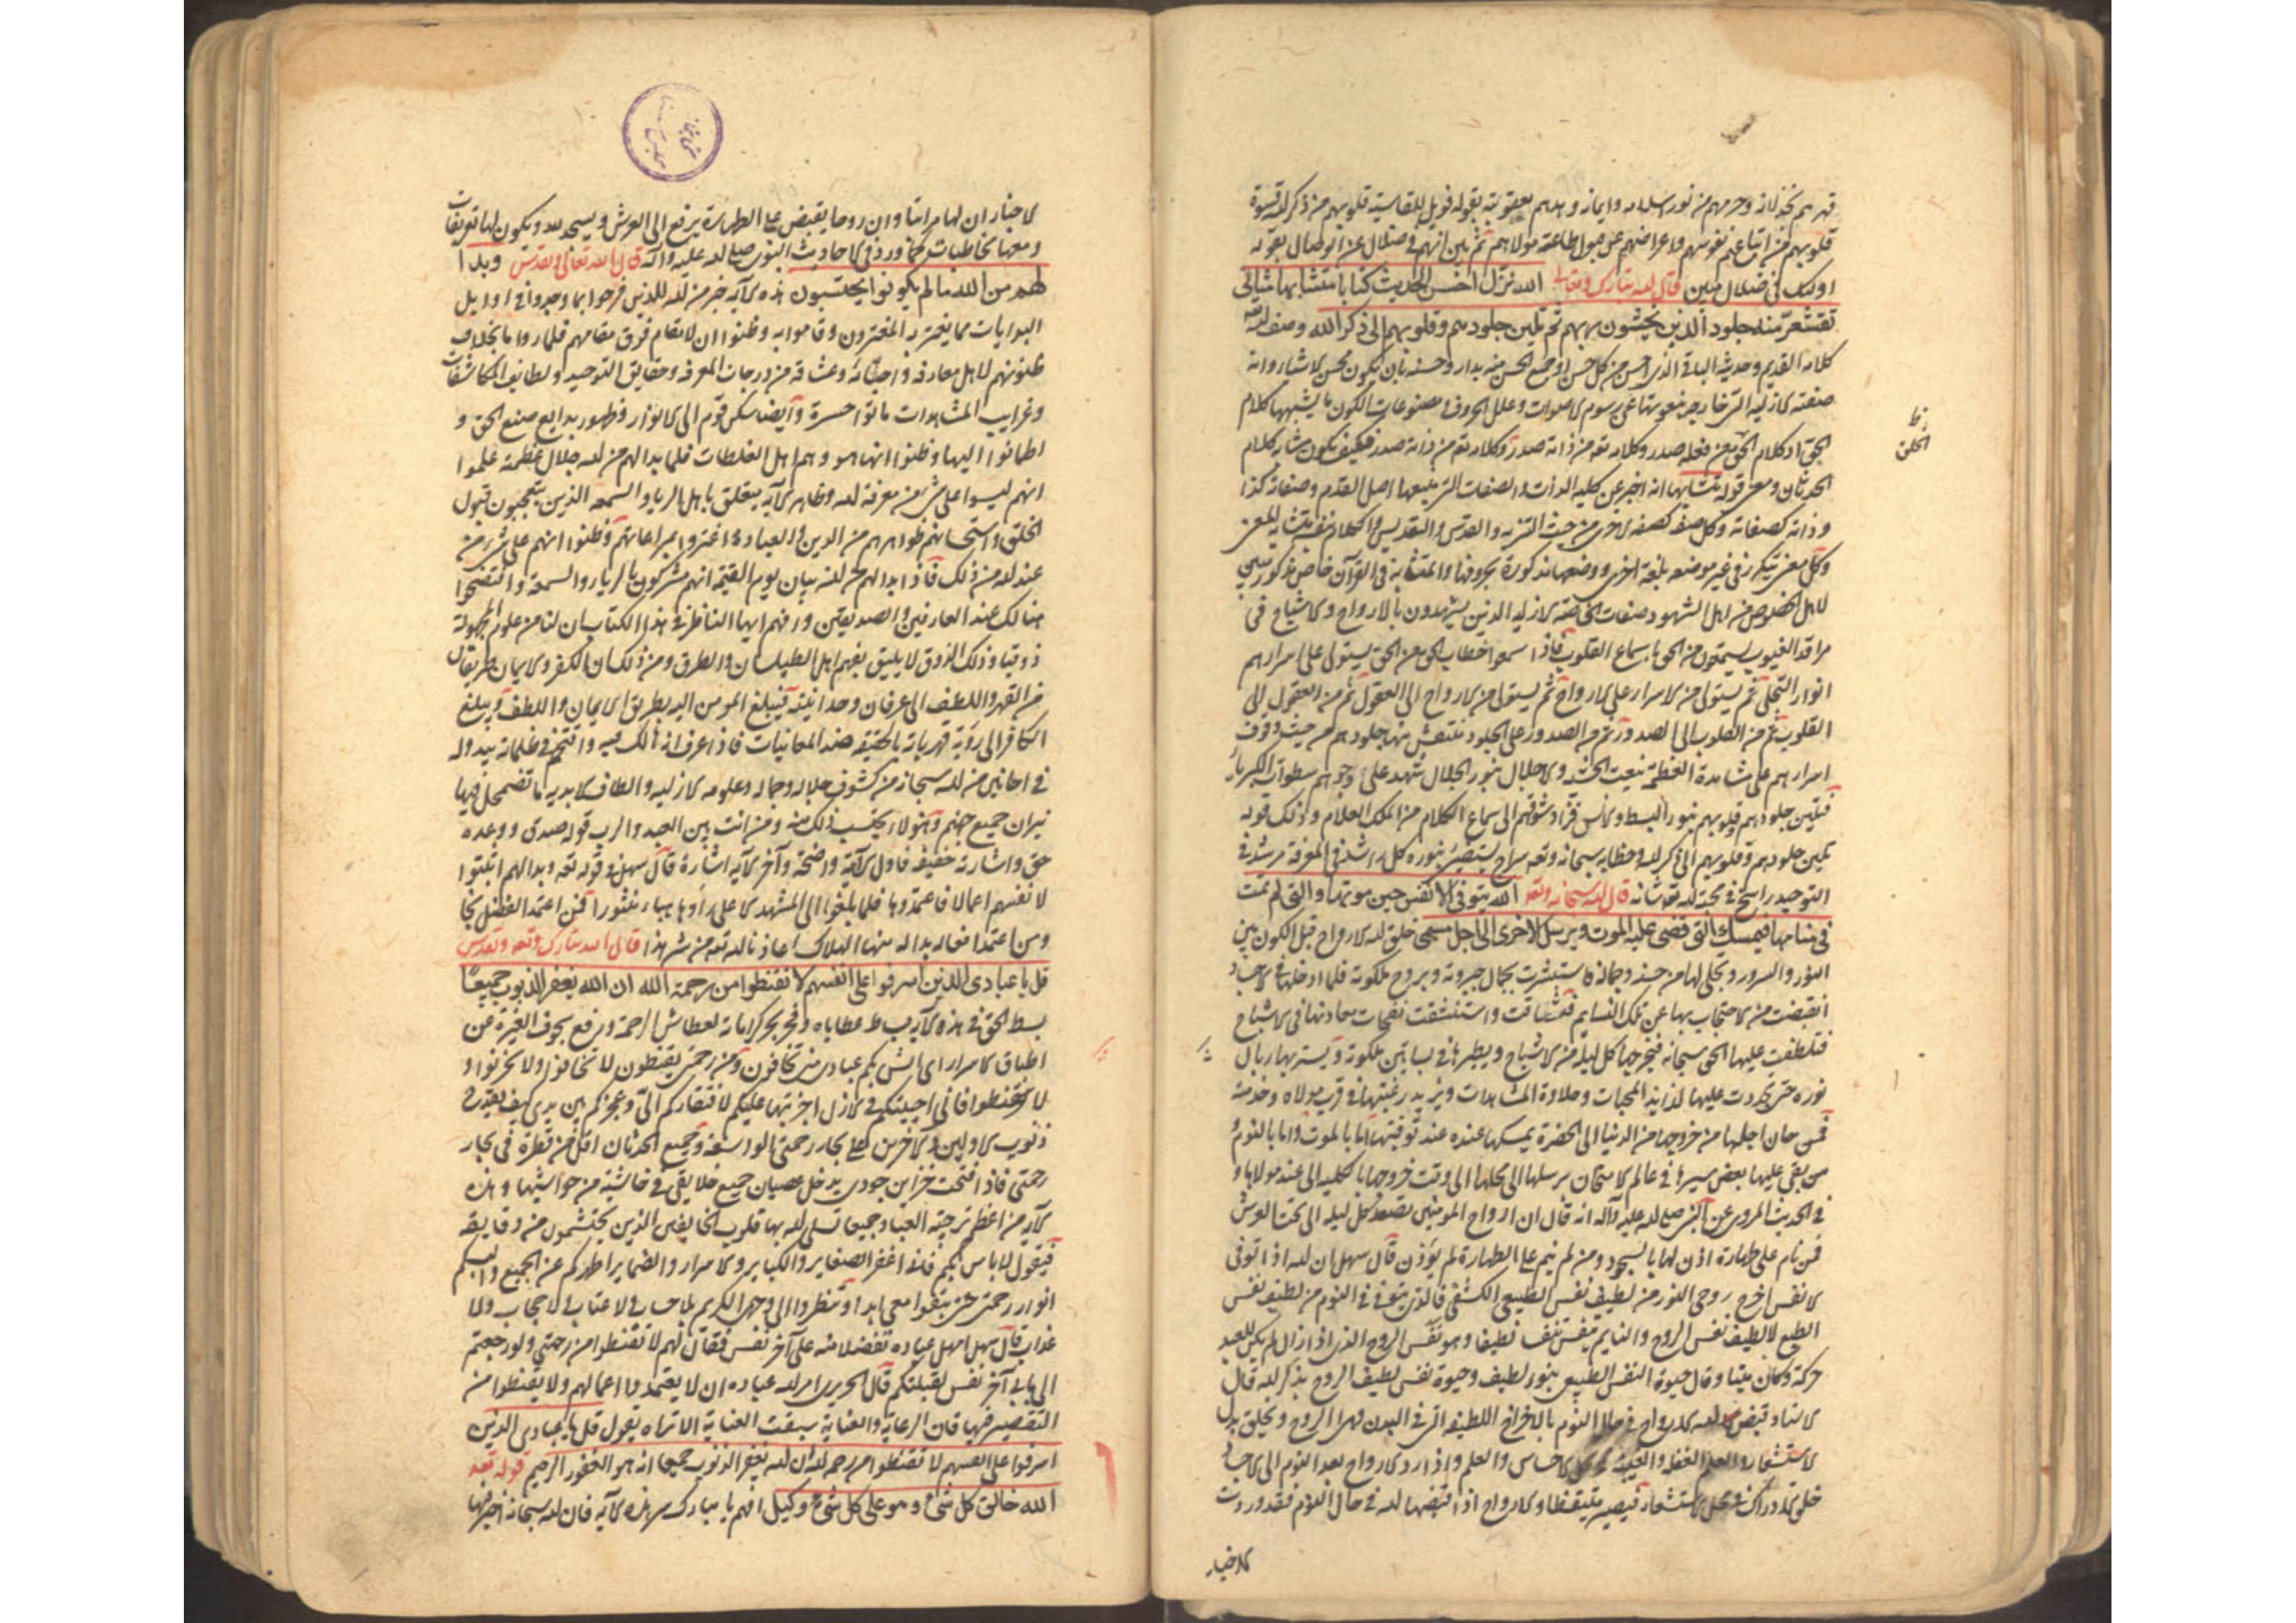 قهرهم بخذلانه وحرمهم من نور اسلامه وايمانه وهددهم بعقوبته بقوله فويل للقاسية قلوبهم من ذكر الله قسوة
قلوبهم من اتباع نفوسهم واعراضهم عن قبول طاعة مولاهم ثم بين انهم في ضلال عن الوصال بقوله
اولئك في ضلال مبين قال الله تبارك وتعالى الله نزل احسن الحديث كتابا متشابها مثاني
تقشعر منه جلود الذين يخشون ربهم ثم تلين جلودهم وقلوبهم الى ذكر الله وصف الله
كلامه القديم وحديثه الباقي الذي احسن من كل حسن
صفته الازلية
الحق اذ كلام الخلق من فعله صدر وكلامه تعه من ذاته صدر فكيف يكون مشابه كلام
الحدثان ومعنى قوله متشابها انه اخبر عن كلية الذات والصفات التي منبعها اصل القدم وصفاته كذا
وذاته كصفاته وكل صفة كصفة اخرى من حيث التنزيه والقدس والتقديس والكلام
وكل معنى يتكرر في غير موضعه بلغة اخرى ووضعها مذكورة بحروفها والمتشابه في القرآن خاص
لاهل الخصوص من اهل الشهود صفات الخاصة الازلية الذين يشهدون بالارواح والاشباح في
مراقد الغيوب يسمعون من الحق باسماع القلوب فاذا سمعوا خطاب الحق من الحق يستولى على اسرارهم
انوار التجلى ثم يستولى من الاسرار على الارواح ثم يستولى من الارواح الى العقول ثم من العقول الى
القلوب ثم من القلوب الى الصدور ثم من الصدور على الجلود فتقشعر منها جلودهم من حيث وقوف
اسرارهم على مشاهدة العظمة بنعت الخشية والاجلال بنور الجلال تشهد على وجوههم سطوات الكبرياء
فتلين جلودهم وقلوبهم بنور البسط والانس فزاد شوقهم الى سماع الكلام من الملك العلام وذلك قوله
تلين جلودهم وقلوبهم الى ذكر الله وخطابه سبحانه وتعه سراج يستضئ بنوره كل راشد في المعرفة مرشد في
التوحيد راسخ في محبة الله تعه شانه قال الله سبحانه وتعه الله يتوفى الانفس حين موتها والتي لم تمت
في منامها فيمسك التي قضى عليها الموت ويرسل الاخرى الى اجل مسمى خلق الله الارواح قبل الكون بين
النور والسرور وتجلى لها من حسنه وجماله فاستبشرت بجمال جبروته وبروح ملكوته فلما ادخلها في الاجساد
انقبضت من الاحتجاب بها عن تلك النسايم فتشاقت واستنشقت نفحات معادنها في الاشباح
فتلطفت عليها الحق سبحانه فيخرجها كل ليلة من الاشباح ويطيرها في بساتين ملكوته
نوره حتى تجددت عليها لذايذ المحبات وحلاوة المشاهدات ويزيد رغبتها في قرب مولاه وخدمته
فمن حان اجلها من خروجها من الدنيا الى الحضرة يمسكها عنده عند توفيتها اما بالموت واما بالنوم و
من بقى عليها بعض سيرها في عالم الامتحان يرسلها الى محلها الى وقت خروجها بالكلية الى عند مولاها و
في الحديث المروى عن النبي صلى الله عليه وآله انه قال ان ارواح المومنين تصعد كل ليلة الى تحت العرش
فمن نام على طهارة اذن لها بالسجود ومن لم ينم على الطهارة لم يؤذن قال سهل ان الله اذا توفى
الانفس اخرج روحي النور من لطيف نفس الطبيعي الكثيف فالذي يتوفى في النوم من لطيف نفس
الطبع لا لطيف نفس الروح والنايم يتنفس تنفسا لطيفا وهو نفس الروح الذي اذا زال لم يكن للعبد
حركة وكان ميتا وقال حيوة النفس الطبيعي بنور لطيف وحيوة نفس لطيف الروح بذكر الله قال
الاستاد قبض الله الارواح في حال النوم باخراج اللطيفة التي في البدن وهي الروح ويخلق بدل
الاستشعار والعلم الغفلة والغيبة في محل الاحساس والعلم واذا رد الارواح بعد النوم الى الاجساد
خلق الادراك في محل الاستشعار فيصير متيقظا والارواح اذا قبضها الله في حال النوم فقد وردت
الاخبار
ظ
الخلق
الاخبار ان لها مراتبا وان روحا يقبض على الطهارة يرفع الى العرش ويسجد لله ويكون لها تعريفات
ومعها مخاطبات كما ورد في الاحاديث النبوى صلى الله عليه وآله قال الله تعالى وتقدس وبدا
لهم من الله ما لم يكونوا يحتسبون هذه الآية خبر من الله للذين فرحوا بما وجدوا في اوايل
البدايات مما يغتر به المغترون وقاموا به وظنوا ان لا مقام فوق مقامهم فلما راوا ما بخلاف
ظنونهم لاهل معارفه واحبائه وعشاقه من درجات المعرفة وحقايق التوحيد ولطايف المكاشفات
وغرايب المشاهدات ماتوا حسرة وايضا سكن قوم الى الانوار وظهور بدايع صنع الحق و
اطمانوا اليها وظنوا انها هو وهم اهل الغلطات فلما بدا لهم من الله جلال عظمته علموا
انهم ليسوا على شئ من معرفة الله وظاهر الآية يتعلق باهل الريا والسمعة الذين يتعجبون قبول
الخلق واستحسانهم ظواهرهم من الدين والعبادة اغتروا بمراعاتهم وظنوا انهم على شئ من
عند الله من ذلك فاذا بدا لهم من الله بيان يوم القيمة انهم مشركون بالرياء والسمعة وافتضحوا
هنالك عند العارفين والصديقين وافهم ايها الناظر في هذا الكتاب ان لنا من علوم المجهولة
ذوقيا وذلك الذوق لا يليق بفهم اهل الطيلسان والطرق ومن ذلك ان الكفر والايمان طريقان
من القهر واللطف الى عرفان وحدانيته فيبلغ المومن اليه بطريق الايمان واللطف ويبلغ
الكافر الى رؤية قهرياته بالحقيقة ضد المعاينات فاذا عرف انه هالك فيه وافتضح في ظلماته يبدو له
في احايين من الله سبحانه من كشوف جلاله وجماله وعلومه الازلية والطاف الابدية ما تضمحل فيها
نيران جميع جهنم وهؤلاء لم يحتسب ذلك منه ومن انت بين العبد والرب قوله صدق ووعده
حق واشارته خفيفة فاول الآية واضحة وآخر الآية اشارة قال سهل في قوله تعه وبدا لهم اثبتوا
لانفسهم اعمالا فاعتمدوها فلما بلغوا الى المشهد الاعلى راوها هباء منثورا فمن اعتمد الفضل نجا
ومن اعتمد افعاله بدا له منها الهلاك اعاذنا الله تعه من شر هذا قال الله تبارك وتعه وتقدس
قل يا عبادي الذين اسرفوا على انفسهم لا تقنطوا من رحمة الله ان الله يغفر الذنوب جميعًا
بسط الحق في هذه الآية بساط عطاياه وفجر بحر كراماته لعطاش الرحمة ورفع سجوف الغيرة عن
اطباق الاسرار اى ايش بكم عبادى منى تخافون ومن رحمتى يقنطون لا تخافوا ولا تحزنوا و
لا تقنطوا فاني احببتكم في الازل اخترتها عليكم لافتقاركم الىّ وعجزكم بين يدى كيف يقدح
ذنوب الاولين والآخرين على بحار رحمتى الواسعة وجميع الحدثان اقل من قطرة في بحار
رحمتى فاذا فتحت خزاين جودى يدخل عصيان جميع خلايقى في حاشية من حواشيها وهذه
الآية من اعظم ترجية العباد جميعا تسلى الله بها قلوب الخايفين الذين يحتشمون من دقايقه
فيقول لا باس بكم فاني اغفر الصغاير والكباير والاسرار والضماير اطهركم عن الجميع والبسكم
انوار رحمتى حتى يبقوا معي ابدا وتنظروا الى وجهى الكريم بلا حساب ولا عتاب ولا حجاب ولا
عذاب قال سهل امهل عباده تفضلا منه على آخر نفس فقال لهم لا تقنطوا من رحمتى ولو رجعتم
الى بابى آخر نفس لقبلتكم قال الجريرى امر الله عباده ان لا يعتمدوا اعمالهم ولا يقنطوا من
التقصير فيها فان الرعاية والعناية سبقت العناية الا تراه يقول قل يا عبادى الذين
اسرفوا على انفسهم لا تقنطوا من رحمة الله ان الله يغفر الذنوب جميعا انه هو الغفور الرحيم قوله تعه
الله خالق كل شئ وهو على كل شئ وكيل افهم يا مبارك سر هذه الآية فان الله سبحانه اخبر فيها